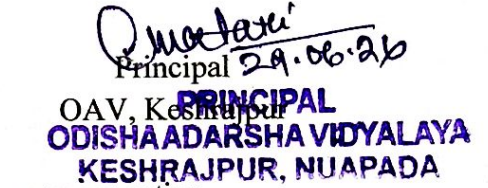 Principal 29.06.26
OAV, Keshrajpur
PRINCIPAL
ODISHA ADARSHA VIDYALAYA
KESHRAJPUR, NUAPADA